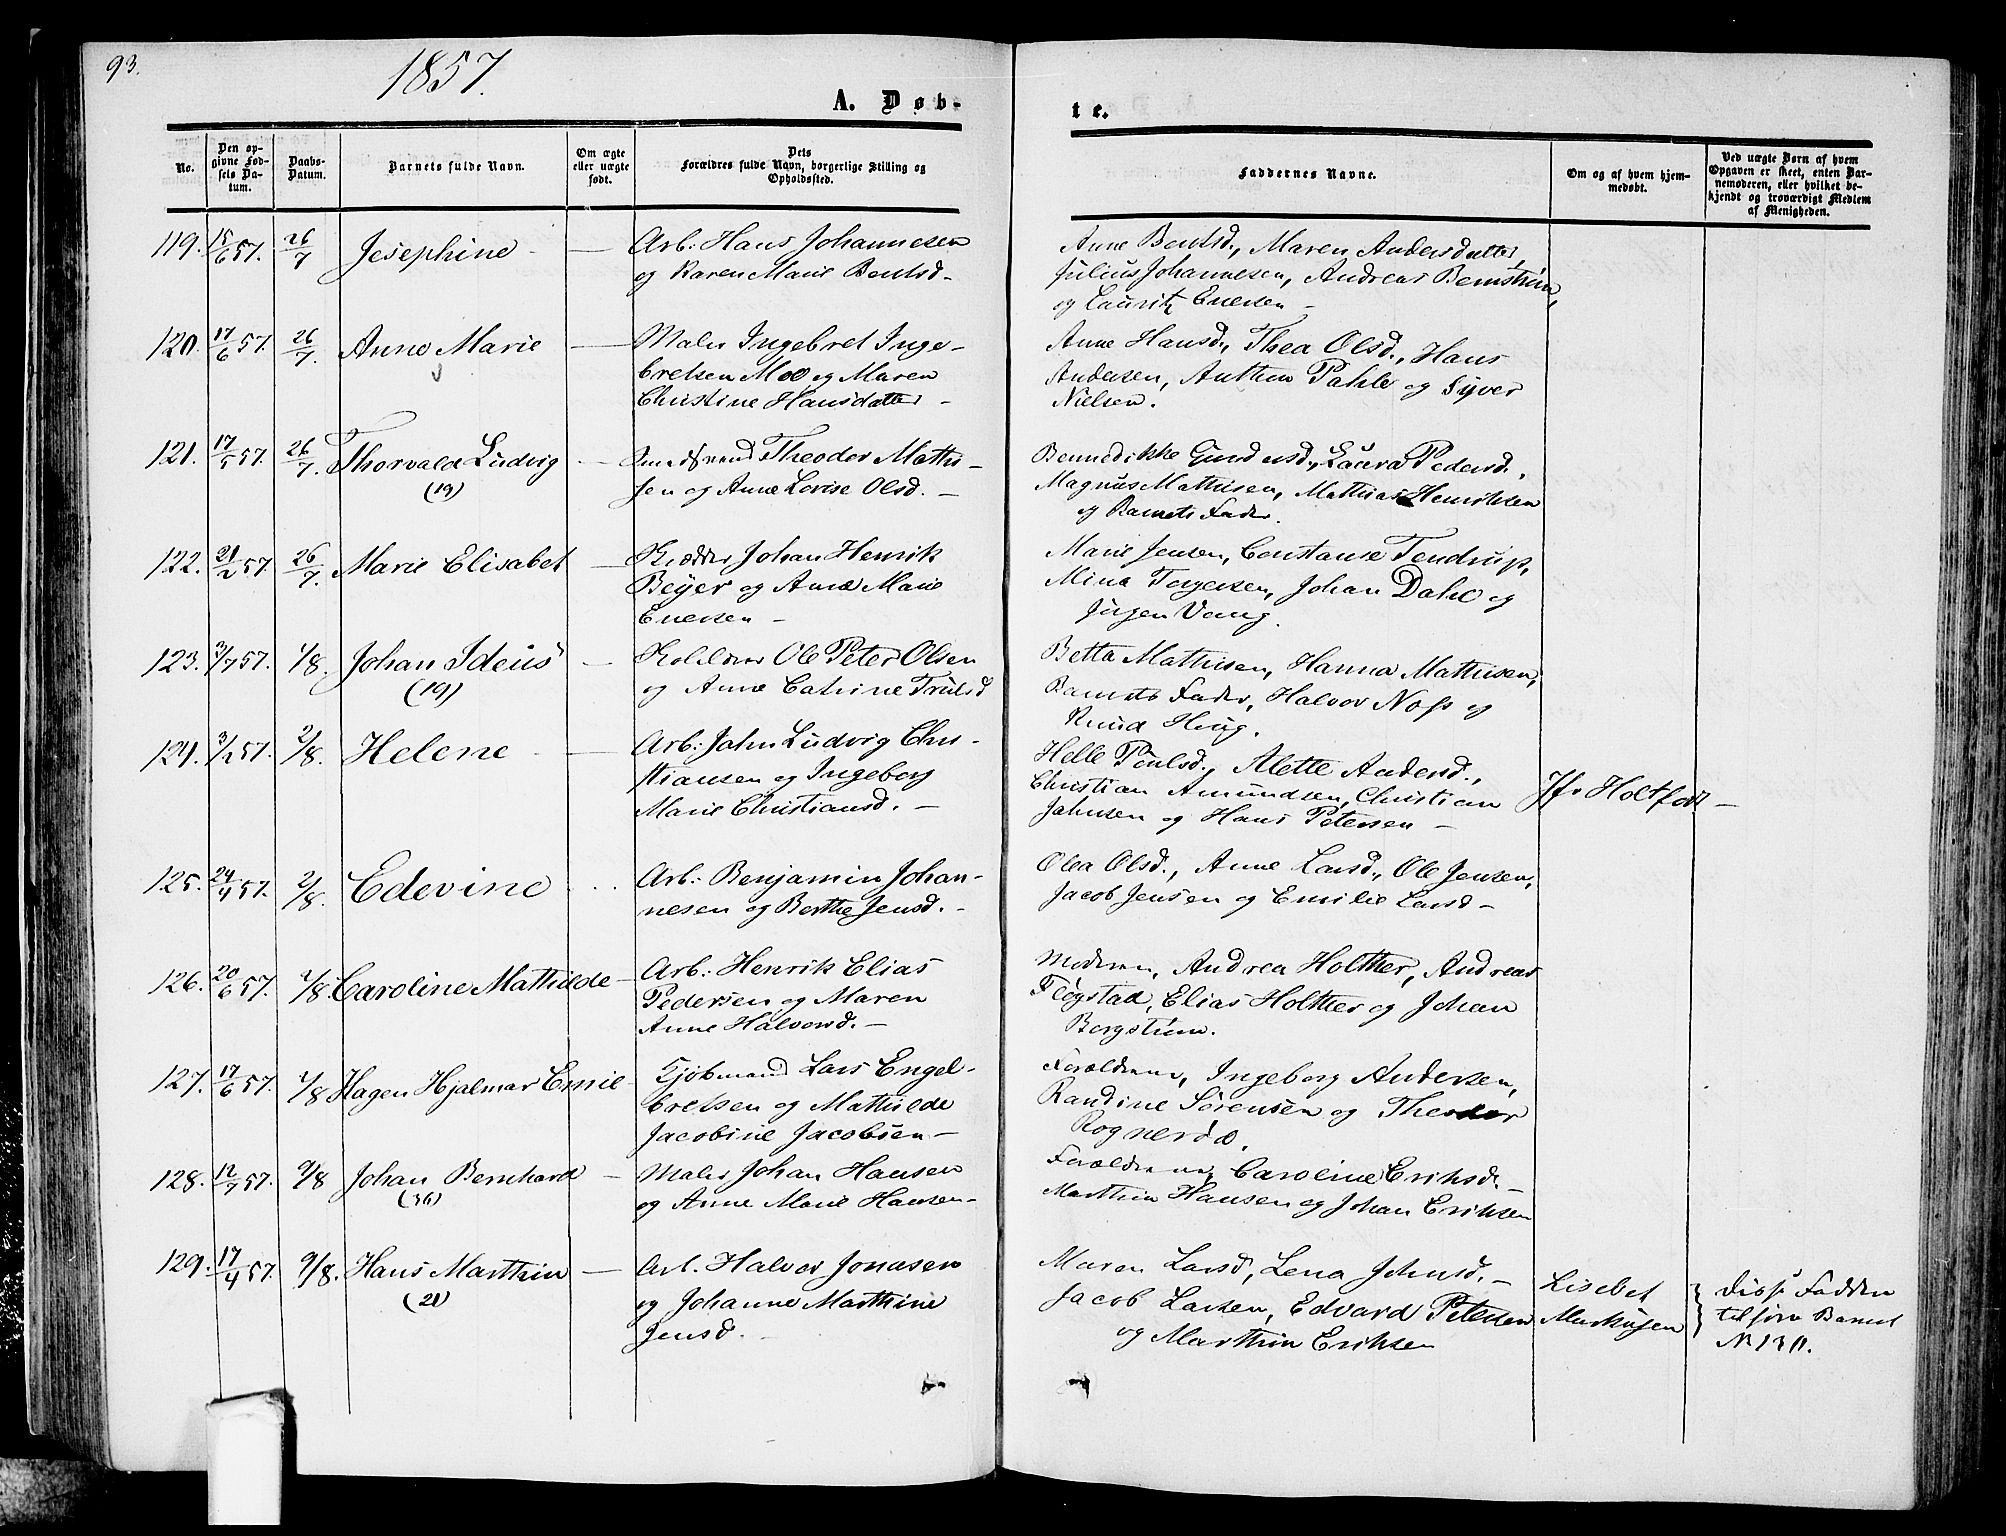 93.
1857.
A. Døb-
te.
No.
Den op-
givne Fød-
sels Da-
tum.
Daabs-
Datum.
Barnets fulde Navn.
Om ægte
eller uægte
født.
Dets
Forældres fulde Navn, borgerlige Stilling og
Opholdssted.
Faddernes Navne.
Om og af hvem hjem-
medøbt.
Ved uægte Børn af hvem
Opgaven er skeet, enten Bar-
nemoderen, eller hvilket be-
kjendt og troværdigt Medlem
af Menigheden.
119. 15/6 57. 26/7 Josephine - — Arb: Hans Johannesen
og Karen Marie Bentsd -
Anne Bentsd., Maren Andersdatter,
Julius Johannesen, Andreas Bernstrøm,
og Lauritz Enersen -
120. 17/6 57. 26/7. Anne Marie — Maler Ingebret Inge-
bretsen Moe og Maren
Christine Hansdatter -
Anne Hansd., Thea Olsd., Hans
Andersen, Anthon Pahle og Syver
Nielsen.
121. 17/5 57. 26/7. Thorvald Ludvig — Smedsvend Theodor Mathi-
(19)
sen og Anne Lovise Olsd. -
Bennedikke Gundersd., Laura Pedersd.,
Magnus Mathisen, Mathias Henriksen
og Barnets Fader.
122. 21/2 57. 26/7. Marie Elisabet — Skrædder Johan Henrik
Beyer og Anne Marie
Enersen -
Marie Jensen, Constanse Tendrup,
Mina Torgersen, Johan Dahl og
Jørgen Vang.
123. 3/7 57. 1/8. Johan Ideus — Ole Peter Olsen
(19)
og Anne Catrine Trulsd
Betta Mathisen, Hanna Mathisen,
Barnets Fader, Halvor Noss og
Knud Haug.
124. 3/2 57. 2/8. Helene - — Arb: John Ludvig Chri-
stiansen og Ingeborg
Marie Christiansd. -
Helle Poulsd., Alette Andersd.,
Christian Amundsen, Christian
Johnsen og Hans Petersen -
Jfr Holtfodt -
125. 24/4 57. 2/8. Edevine . . . Arb: Benjamin Johan-
nesen og Berthe Jensd. -
Olea Olsd., Anne Larsd., Ole Jensen,
Jacob Jensen og Emilie Larsd -
126. 20/6 57. 2/8 Caroline Mathilde — Arb: Henrik Elias
Pedersen og Maren
Anne Halvorsd. -
Moderen, Andrea Holther, Andreas
Flogstad, Elias Holther og Johan
Borgstrøm.
127. 17/6 57. 2/8 Hagen Hjalmar Emil — Kjøbmand Lars Engel-
bretsen og Mathilde
Jacobine Jacobsen -
Forældrene, Ingeborg Andersen,
Randine Sørensen og Theodor
Rognerød.
128. 12/7 57. 9/8 Johan Bernhard — Maler Johan Hansen
(36)
og Anne Marie Hansen -
Forældrene, Caroline Eriksd. -
Marthin Hansen og Johan Eriksen
129. 17/4 57. 9/8. Hans Marthin — Arb. Halvor Jonasen
(21)
og Johanne Marthine
Jensd. -
Maren Larsd, Lena Johnsd. -
Jacob Larsen, Edvard Petersen
og Marthin Eriksen
Lisebet
Disse Faddere
tilføre Barnet
N. 130.